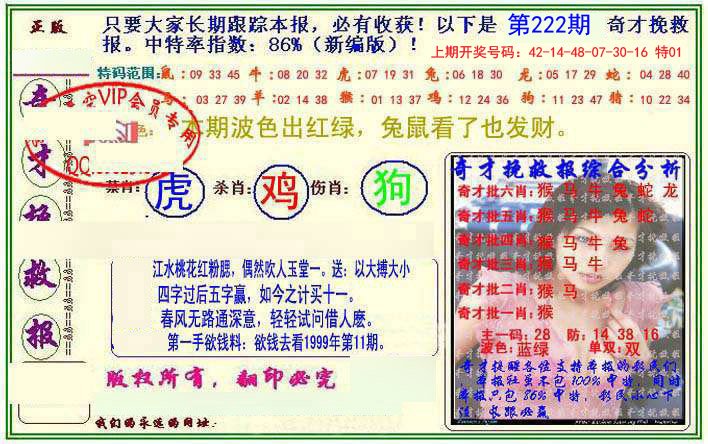 正版
只要大家长期跟踪本报，必有收获！以下是 第222期 奇才挽救
报。中特率指数：86%（新编版）！
上期开奖号码：42-14-48-07-30-16 特01
特码范围：鼠：09 33 45 牛：08 20 32 虎：07 19 31 兔：06 18 30 龙：05 17 29 蛇：04 28 40
马：03 27 39 羊：02 14 38 猴：01 13 37 鸡：12 24 36 狗：11 23 47 猪：10 22 34
VIP会员专用
QQ
本期波色出红绿，兔鼠看了也发财。
才
救
报
菜肖：虎 杀肖：鸡 伤肖：狗
江水桃花红粉腮，偶然吹人玉堂一。送：以大搏大小
四字过后五字赢，如今之计买十一。
春风无路通深意，轻轻试问借人麽。
第一手欲钱料：欲钱去看1999年第11期。
版权所有，翻印必究
我们的永远的网址：
奇才挽救报综合分析
奇才批六肖：猴 马 牛 兔 蛇 龙
奇才批五肖：猴 马 牛 兔 蛇
奇才批四肖：猴 马 牛 兔
奇才批三肖：猴 马 牛
奇才批二肖：猴 马
奇才批一肖：猴
主一码：28 防：14 38 16
波色：蓝绿 单双：双
奇才提醒各位支持本报的彩民们
，本报社虽不包100%中特，但时
本报只包86%中特，彩民小心下
注，长跟必赢